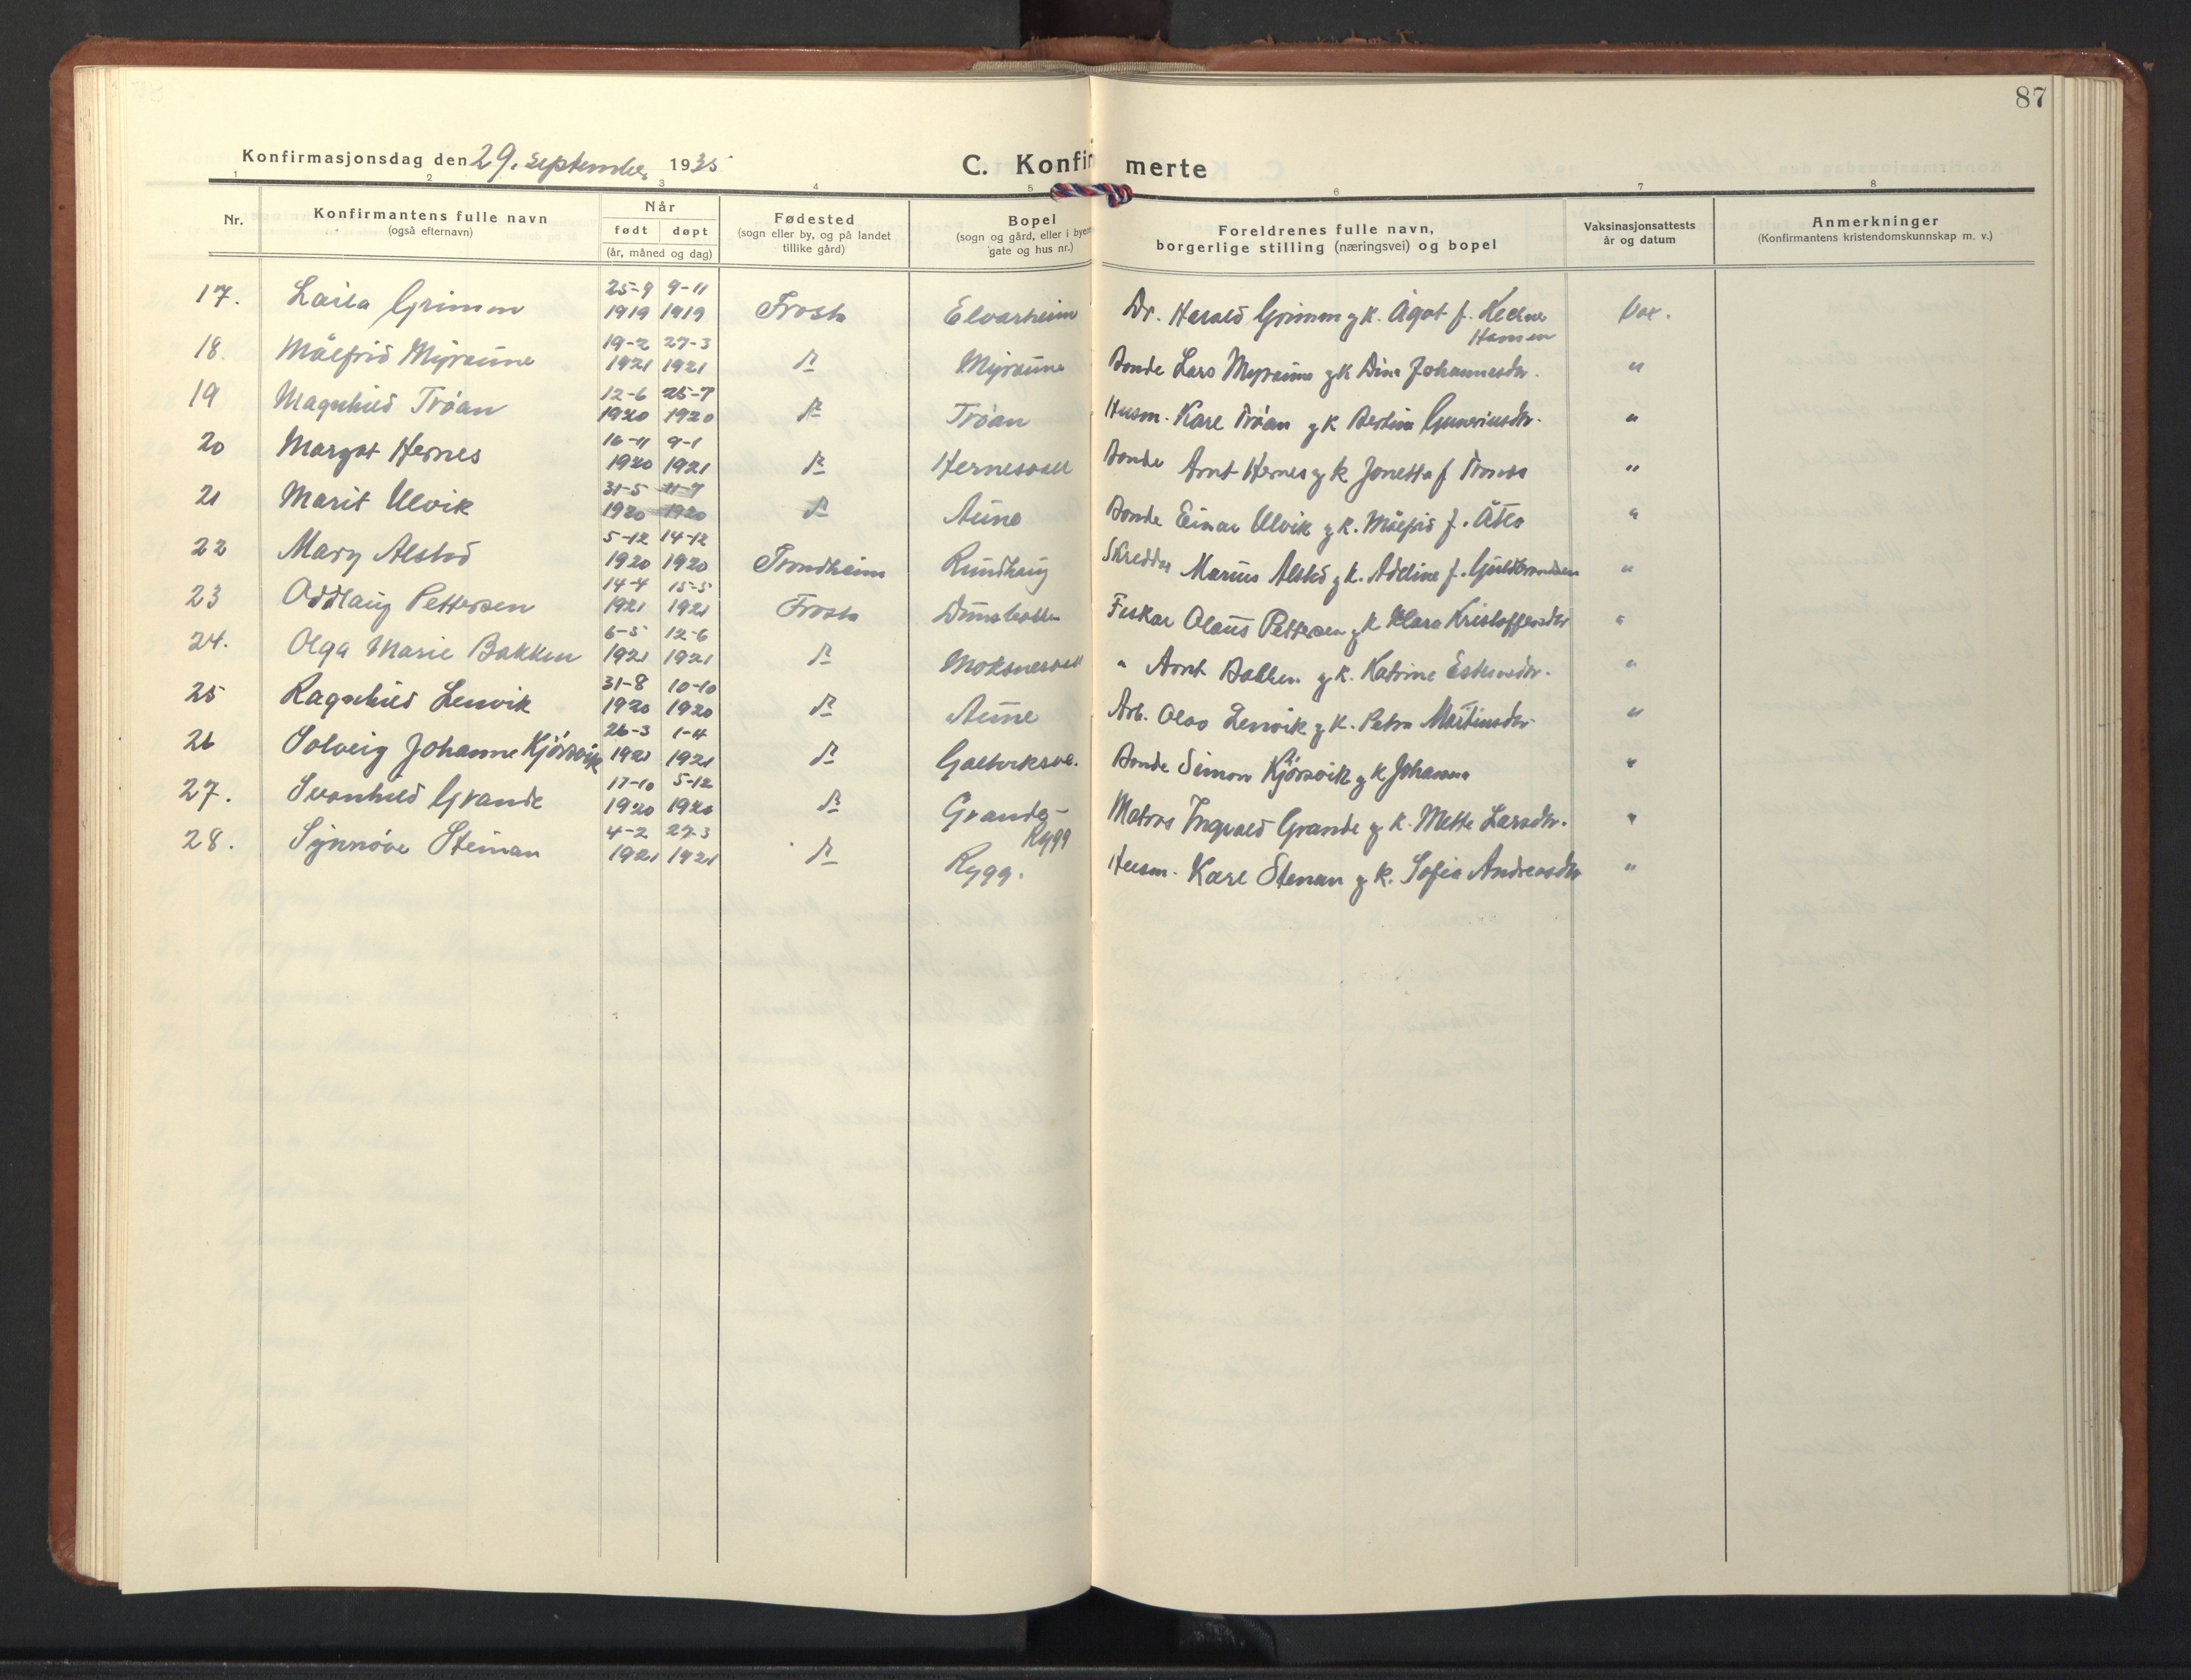 87
Konfirmasjonsdag den 29. september 1935
C. Konfirmerte
1 2 3 4 5 6 7 8
Nr. Konfirmantens fulle navn (også efternavn) Når født døpt (år, måned og dag) Fødested (sogn eller by, og på landet tillike gård) Bopel (sogn og gård, eller i byen gate og hus nr.) Foreldrenes fulle navn, borgerlige stilling (næringsvei) og bopel Vaksinasjonsattests år og datum Anmerkninger (Konfirmantens kristendomskunnskap m. v.)
17. Laila Grimm 25-9 1919 9-11 1919 Frosta Elvarheim Dr. Harald Grimm g k. Ågot f. Hansen Vax.
18. Målfrid Myraune 19-2 1921 27-3 1921 d⁰ Myraune Bonde Lars Myraune g k Dina Johannesdtr. "
19 Magnhild Trøan 12-6 1920 25-7 1920 d⁰ Trøan Husm. Karl Trøan g k Bertina Guneriusdtr. "
20 Margot Hernes 16-11 1920 9-1 1921 d⁰ Hernesvall Bonde Arnt Hernes g k Jonetta f "
21 Marit Ulvik 31-5 1920 11-7 1920 d⁰ Aune Bonde Einar Ulvik g k. Målfrid f. "
22 Mary Alstad 5-12 1920 14-12 1920 Trondheim Rundhaug Skredder Marius Alstad g k. Adeline f. Guldbrandsen "
23 Oddlaug Pettersen 14-4 1921 15-5 1921 Frosta Fiskar Olaus Pettersen g k Klara Kristoffersdtr "
24. Olga Marie Bakken 6-5 1921 12-6 1921 d⁰ Moksnesvall " Arnt Bakken g k. Katrine Estensdtr. "
25 Ragnhild Lenvik 31-8 1920 10-10 1920 d⁰ Aune Arb. Olav Lenvik g k. Petra Martinsdtr. "
26 Solveig Johanne Kjørsvik 26-3 1921 1-4 1921 d⁰ Bonde Simon Kjørsvik g k Johanna "
27. Svanhild Grande 17-10 1920 5-12 1920 d⁰ Grande-Rygg Matros Ingvald Grande g k. Mette Larsdtr. "
28. Synnøve Steinan 4-2 1921 27-3 1921 d⁰ Rygg. Husm. Karl Stenan g k. Sofia Andreasdtr "